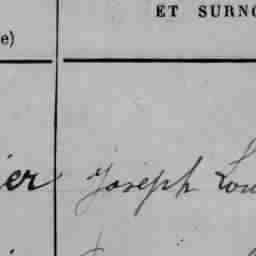 ET SURNO
e)
ier Joseph Lou